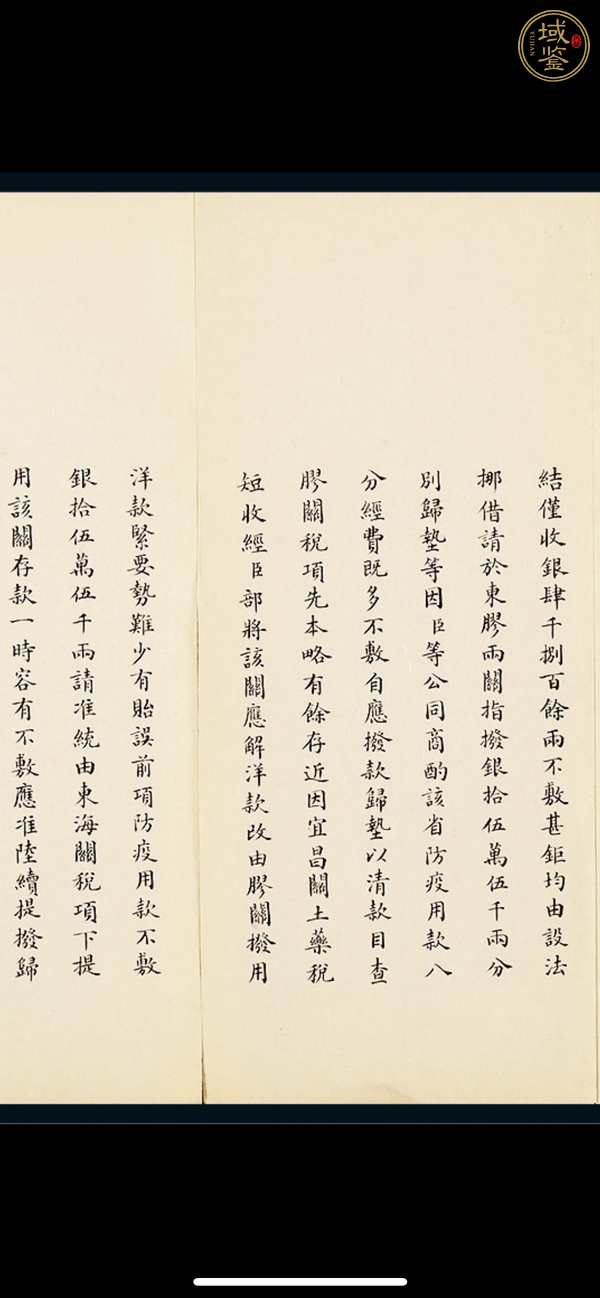 域鉴
YUJIAN
結僅收銀肆千捌百餘兩不敷甚鉅均由設法
挪借請於東膠兩關指撥銀拾伍萬伍千兩分
別歸墊等因臣等公同商酌該省防疫用款八
分經費既多不敷自應撥款歸墊以清款目查
膠關稅項先本略有餘存近因宜昌關土藥稅
短收經臣部將該關應解洋款改由膠關撥用
洋款緊要勢難少有貽誤前項防疫用款不敷
銀拾伍萬伍千兩請准統由東海關稅項下提
用該關存款一時容有不敷應准陸續提撥歸